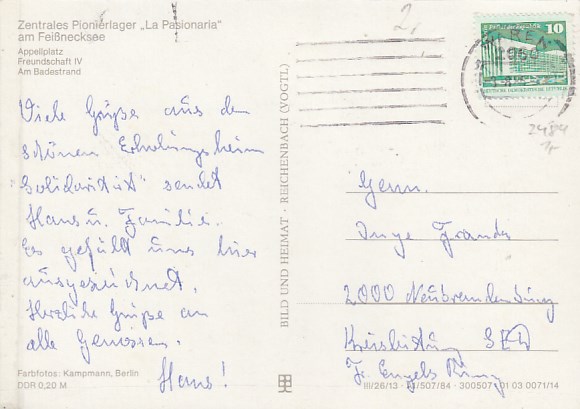 Zentrales Pionierlager „La Pasionaria"
am Feißnecksee
Appellplatz
Freundschaft IV
Am Badestrand
Viele Grüße aus dem
schönen Erholungsheim
"Solidarität" sendet
Hans u. Familie.
Es gefällt uns hier
ausgezeichnet.
Herzliche Grüße an
alle Genossen.
Hans!
Farbfotos: Kampmann, Berlin
DDR 0,20 M
BILD UND HEIMAT · REICHENBACH (VOGTL)
2,
10
DEUTSCHE DEMOKRATISCHE REPUBLIK
2484
Genn.
Inge
2000 Neubrandenburg
Kreisleitung SED
Fr. Engels Ring
III/26/13 · 507/84 · 300507 01 03 0071/14